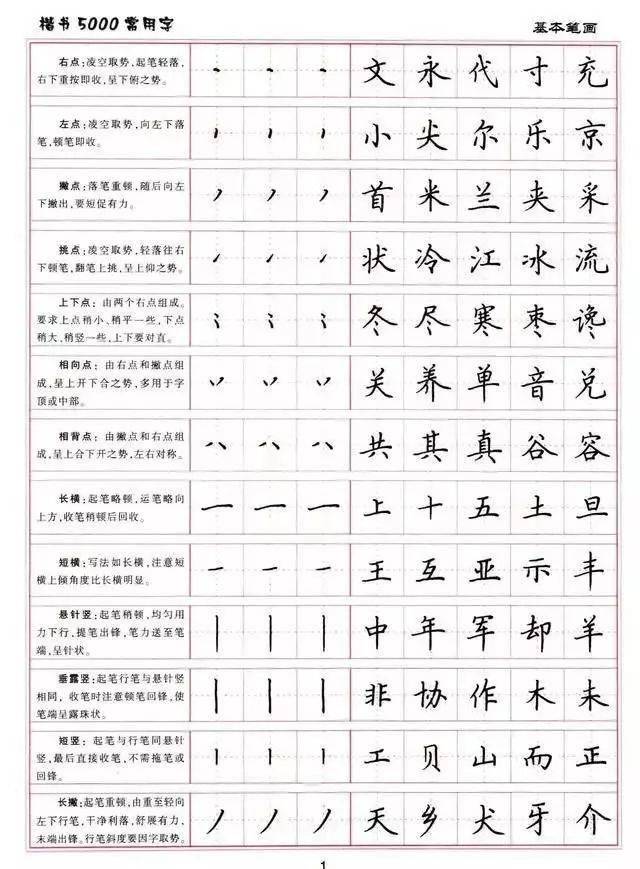 楷书5000常用字
基本笔画
右点：凌空取势，起笔轻落，
右下重按即收，呈下俯之势。
文 永 代 寸 充
左点：凌空取势，向左下落
笔，顿笔即收。
小 尖 尔 乐 京
撇点：落笔重顿，随后向左
下撇出，要短促有力。
首 米 兰 夹 采
挑点：凌空取势，轻落往右
下顿笔，翻笔上挑，呈上仰之势。
状 冷 江 冰 流
上下点：由两个右点组成。
要求上点稍小、稍平一些，下点
稍大，稍竖一些，上下要对直。
冬 尽 寒 枣 谗
相向点：由右点和撇点组
成，呈上开下合之势，多用于字
顶或中部。
关 养 单 音 兑
相背点：由撇点和右点组
成，呈上合下开之势，左右对称。
共 其 真 谷 容
长横：起笔略顿，运笔略向
上方，收笔稍顿后回收。
上 十 五 土 旦
短横：写法如长横，注意短
横上倾角度比长横明显。
王 互 亚 示 丰
悬针竖：起笔稍顿，均匀用
力下行，提笔出锋，笔力送至笔
端，呈针状。
中 年 军 却 羊
垂露竖：起笔行笔与悬针竖
相同，收笔时注意顿笔回锋，使
笔端呈露珠状。
非 协 作 木 未
短竖：起笔与行笔同悬针
竖，最后直接收笔，不需拖笔或
回锋。
工 贝 山 而 正
长撇：起笔重顿，由重至轻向
左下行笔，干净利落，舒展有力，
末端出锋。行笔斜度要因字取势。
天 乡 犬 牙 介
1